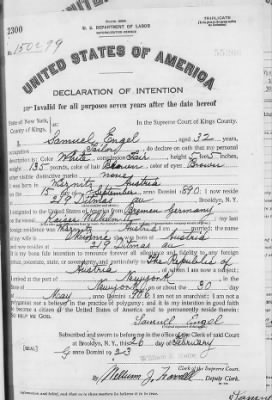 TRIPLICATE
U. S. DEPARTMENT OF LABOR
NATURALIZATION SERVICE
2300
No. 15099
55206
UNITED STATES OF AMERICA
DECLARATION OF INTENTION
Invalid for all purposes seven years after the date hereof
State of New York,
County of Kings,
In the Supreme Court of Kings County.
I, Samuel Engel, aged 32 years,
occupation Tailor, do declare on oath that my personal
description is: Color White, complexion Fair, height 5 feet inches,
weight 135 pounds, color of hair Brown, color of eyes Brown
other visible distinctive marks none
I was born in Austria
on the 15 day of September, anno Domini 1890; I now reside
at 219 Ditmas av, Brooklyn, N. Y.
I emigrated to the United States of America from Bremen Germany
on the vessel Kaiser Wilhelm II; my last
foreign residence was Austria; I am married; the name
of my wife is; she was born at Austria
and now resides at 219 Ditmas av
It is my bona fide intention to renounce forever all allegiance and fidelity to any foreign
prince, potentate, state, or sovereignty, and particularly to The Republic of
Austria, of whom I am now a subject;
I arrived at the port of New York, in the
State of New York, on or about the 30 day
of May, anno Domini 1906; I am not an anarchist; I am not a
polygamist nor a believer in the practice of polygamy; and it is my intention in good faith
to become a citizen of the United States of America and to permanently reside therein:
SO HELP ME GOD.
Samuel Engel
Subscribed and sworn to before me in the office of the Clerk of said Court
at Brooklyn, N. Y., this 26 day of February
[SEAL]
anno Domini 1923
Clerk of the Supreme Court.
By William J., Deputy Clerk.